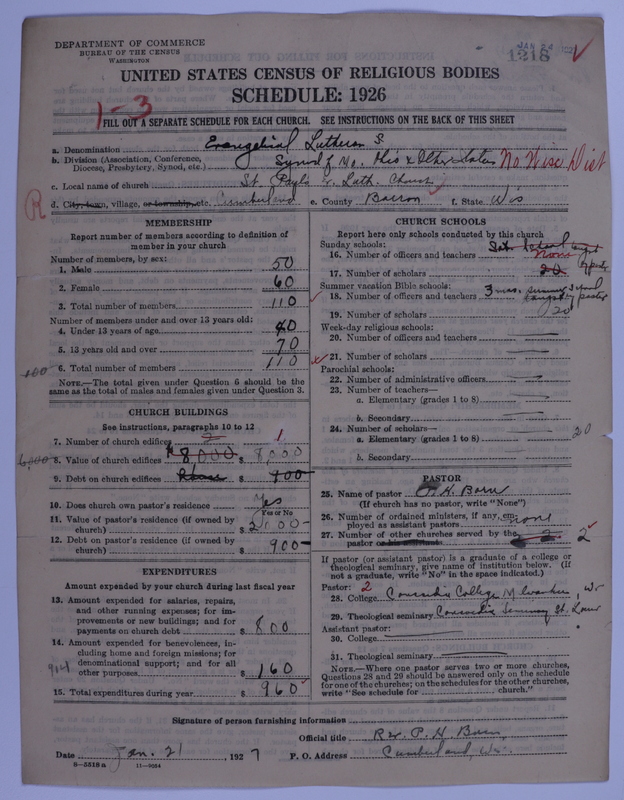 DEPARTMENT OF COMMERCE
BUREAU OF THE CENSUS
WASHINGTON
JAN 24 192
1218
UNITED STATES CENSUS OF RELIGIOUS BODIES
SCHEDULE: 1926
1-3
FILL OUT A SEPARATE SCHEDULE FOR EACH CHURCH. SEE INSTRUCTIONS ON THE BACK OF THIS SHEET
a. Denomination Evangelical Lutheran S
b. Division (Association, Conference, Diocese, Presbytery, Synod, etc.) Synod of Mo. Ohio & Other States No Wisc Dist
c. Local name of church St. Pauls Ev. Luth. Church
R
d. City, town, village, or township, etc. Cumberland e. County Barron f. State Wis
MEMBERSHIP
Report number of members according to definition of
member in your church
Number of members, by sex:
1. Male 50
2. Female 60
3. Total number of members 110
Number of members under and over 13 years old:
4. Under 13 years of age 40
5. 13 years old and over 70
6. Total number of members 110
NOTE.—The total given under Question 6 should be the
same as the total of males and females given under Question 3.
CHURCH BUILDINGS
See instructions, paragraphs 10 to 12
7. Number of church edifices 2 1
8. Value of church edifices 8000 $ 8,000
9. Debt on church edifices $ 900
10. Does church own pastor's residence Yes
Yes or No
11. Value of pastor's residence (if owned by
church) $ 2000
12. Debt on pastor's residence (if owned by
church) $ 900
EXPENDITURES
Amount expended by your church during last fiscal year
13. Amount expended for salaries, repairs,
and other running expenses; for im-
provements or new buildings; and for
payments on church debt $ 800
14. Amount expended for benevolences, in-
cluding home and foreign missions; for
denominational support; and for all
other purposes $ 160
15. Total expenditures during year $ 960
CHURCH SCHOOLS
Report here only schools conducted by this church
Sunday schools:
16. Number of officers and teachers None
17. Number of scholars 20
Summer vacation Bible schools:
18. Number of officers and teachers 3 mos. summer school taught by pastor
19. Number of scholars 20
Week-day religious schools:
20. Number of officers and teachers
21. Number of scholars
Parochial schools:
22. Number of administrative officers
23. Number of teachers—
a. Elementary (grades 1 to 8)
b. Secondary
24. Number of scholars—
20
a. Elementary (grades 1 to 8)
b. Secondary
PASTOR
25. Name of pastor P. H. Born
(If church has no pastor, write "None")
26. Number of ordained ministers, if any, em-
ployed as assistant pastors none
27. Number of other churches served by the
pastor or his assistant 2 2
If pastor (or assistant pastor) is a graduate of a college or
theological seminary, give name of institution below. (If
not a graduate, write "No" in the space indicated.)
Pastor: 2
28. College Concordia College, Milwaukee, Wis
29. Theological seminary Concordia Seminary St. Louis
Assistant pastor:
30. College
31. Theological seminary
NOTE.—Where one pastor serves two or more churches,
Questions 28 and 29 should be answered only on the schedule
for one of the churches; on the schedules for the other churches,
write "See schedule for church."
Signature of person furnishing information
Official title Rev. P. H. Born
Date Jan. 21, 1927 P. O. Address Cumberland, Wis.
8-5518a 11-9034